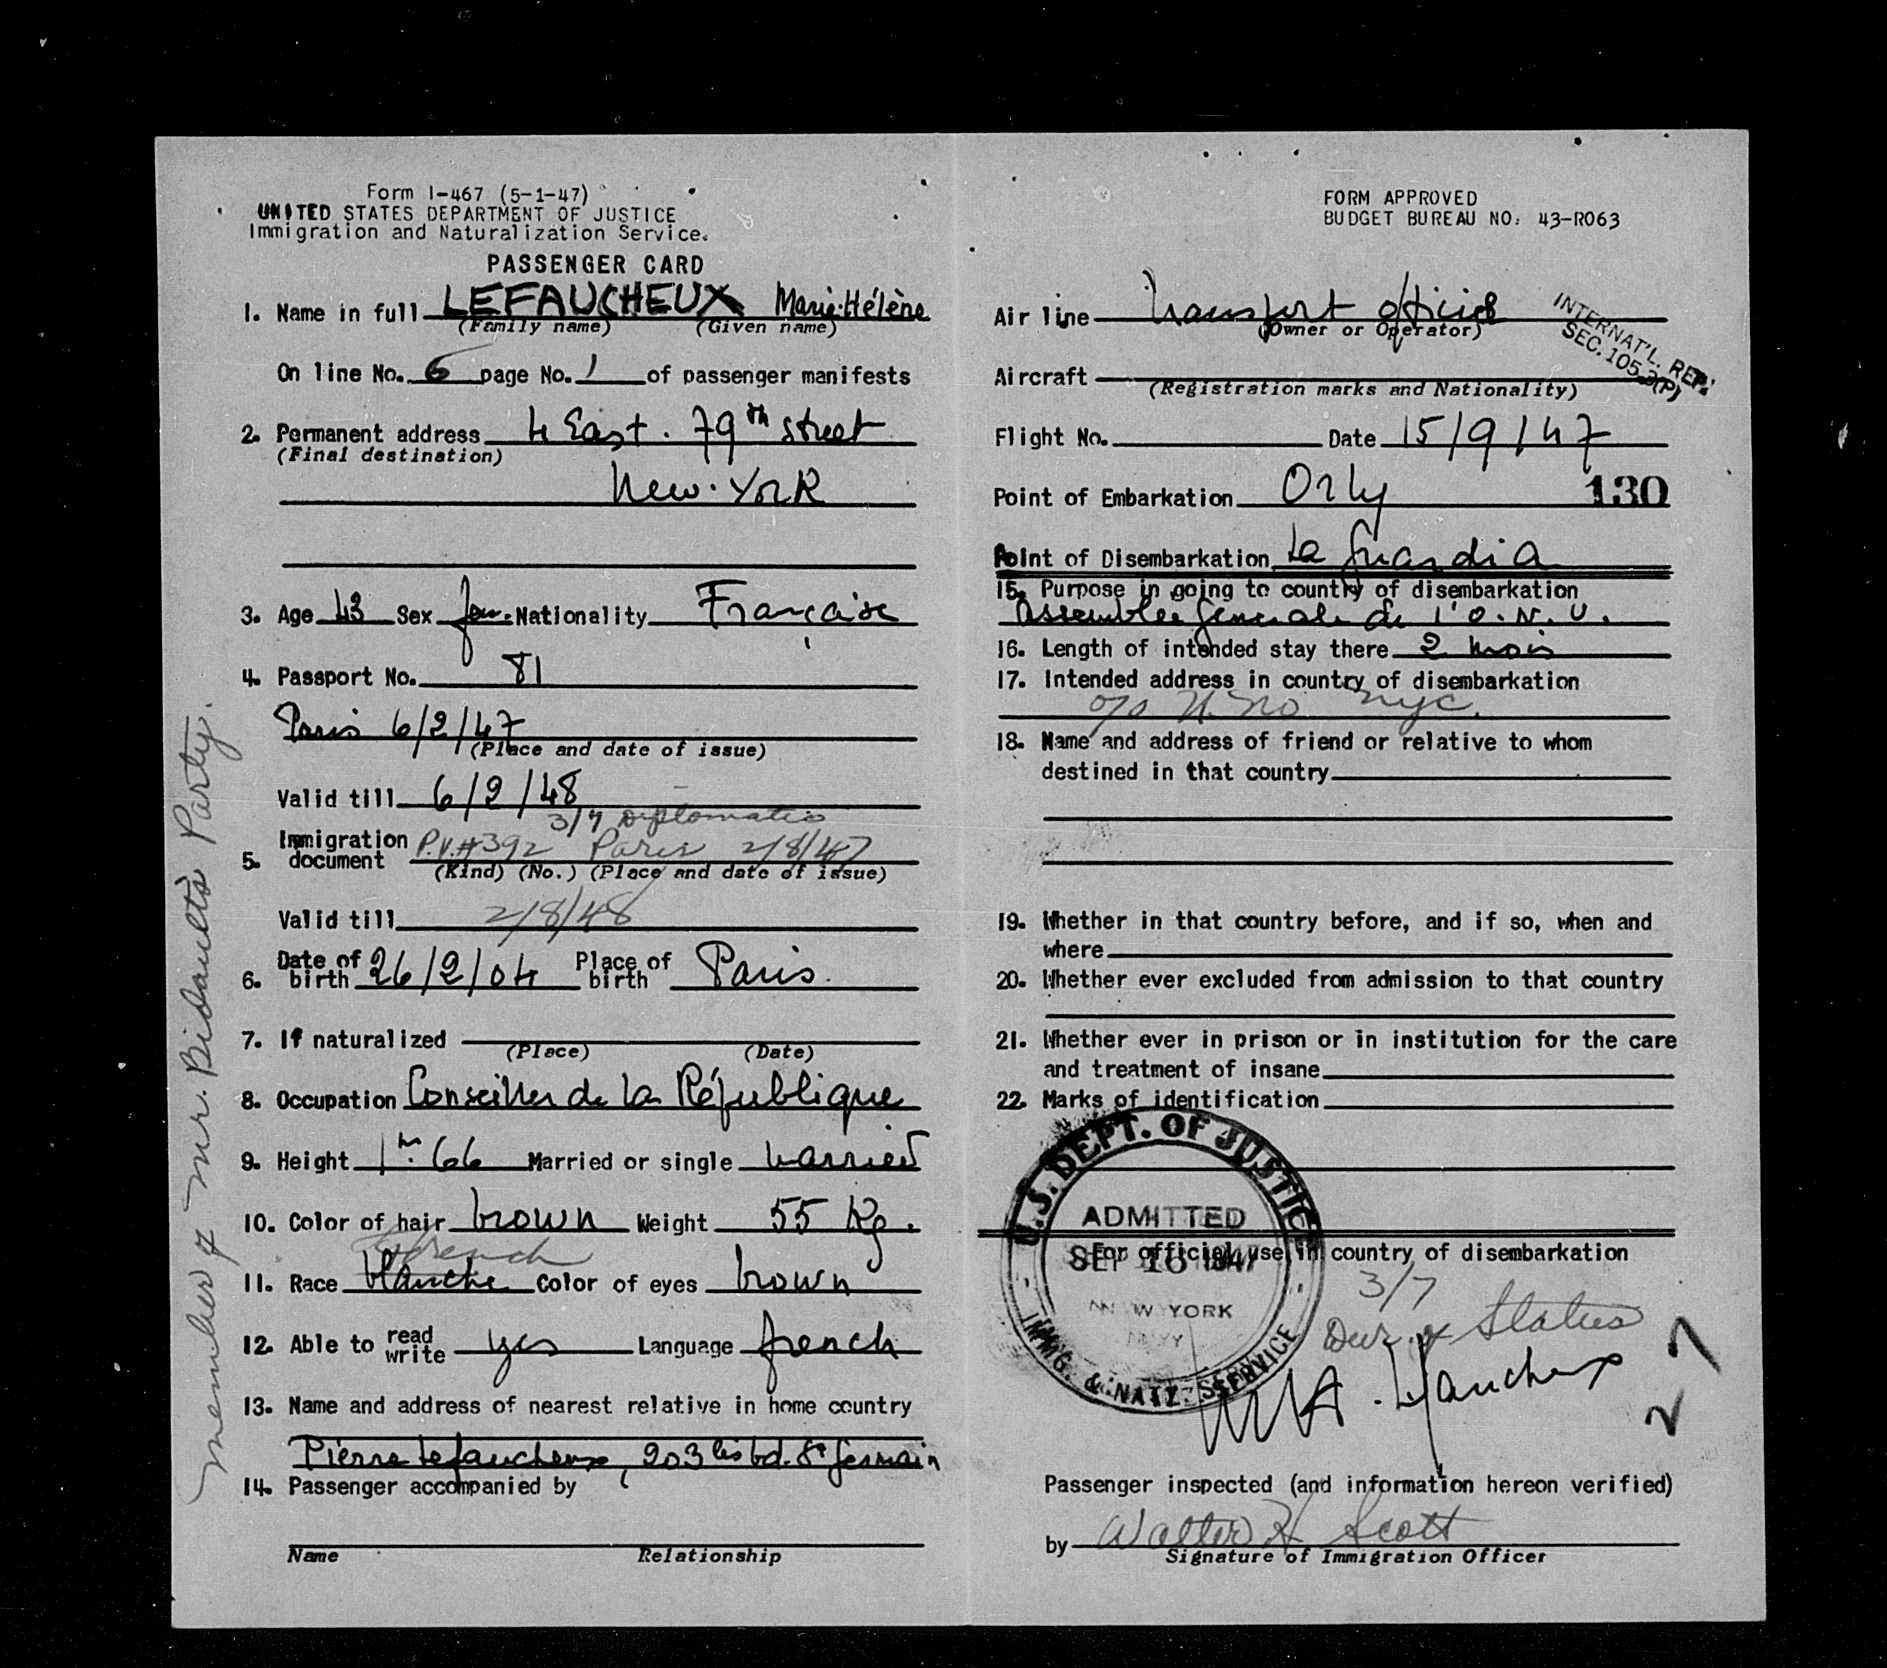 Form I-467 (5-1-47)
UNITED STATES DEPARTMENT OF JUSTICE
Immigration and Naturalization Service.
PASSENGER CARD
1. Name in full LEFAUCHEUX Marie-Hélène
(Family name) (Given name)
On line No. 6 page No. 1 of passenger manifests
2. Permanent address 4 East. 79th street
(Final destination)
New-York
3. Age 43 Sex fem. Nationality Française
4. Passport No. 81
Paris 6/2/47
(Place and date of issue)
Valid till 6/2/48
3/7 Diplomatic
5. Immigration document P.V.#392 Paris 2/8/47
(Kind) (No.) (Place and date of issue)
Valid till 2/8/48
6. Date of birth 26/2/04 Place of birth Paris.
7. If naturalized
(Place) (Date)
8. Occupation Conseiller de la République
9. Height 1m.66 Married or single married
10. Color of hair brown Weight 55 Kg.
French
11. Race blanche Color of eyes brown
12. Able to read write yes Language french
13. Name and address of nearest relative in home country
Pierre Lefaucheux, 203 bis bd. St Germain
14. Passenger accompanied by
Name Relationship
member of Mr. Bidault's Party.
FORM APPROVED
BUDGET BUREAU NO. 43-R063
Air line Transport officiel
(Owner or Operator)
INTERNAT'L. REP.
SEC. 105.3(P)
Aircraft
(Registration marks and Nationality)
Flight No. Date 15/9/47
Point of Embarkation Orly 130
Point of Disembarkation La Guardia
15. Purpose in going to country of disembarkation
Assemblée Générale de l'O.N.U.
16. Length of intended stay there 2 mois
17. Intended address in country of disembarkation
c/o U.NO NYC.
18. Name and address of friend or relative to whom
destined in that country
19. Whether in that country before, and if so, when and
where
20. Whether ever excluded from admission to that country
21. Whether ever in prison or in institution for the care
and treatment of insane
22. Marks of identification
U.S. DEPT. OF JUSTICE
ADMITTED
SEP 16 1947
NEW YORK
IMMG. & NATZ. SERVICE
For official use in country of disembarkation
3/7
Dur. of Status
MH. Lefaucheux
Passenger inspected (and information hereon verified)
by Walter H Scott
Signature of Immigration Officer